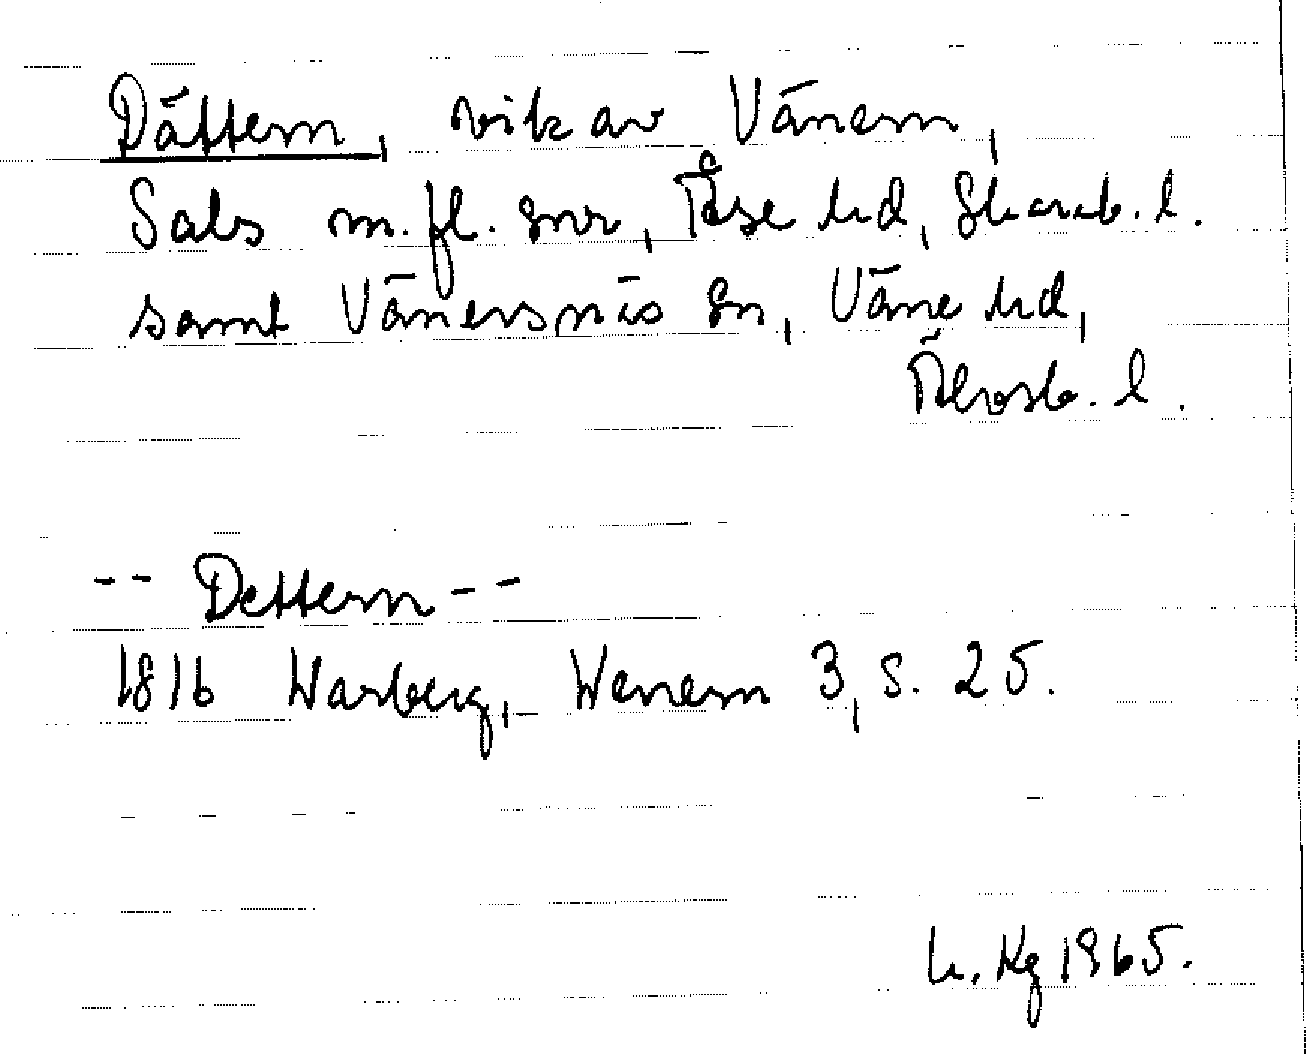 Dättern, vik av Vänern,
Sals m.fl. snr, Åse hd, Skarab. l.
samt Vänersnäs sn, Väne hd,
Älvsb. l.
-- Dettern --
1816 Warberg, Wenern 3, s. 25.
h. Kg 1965.